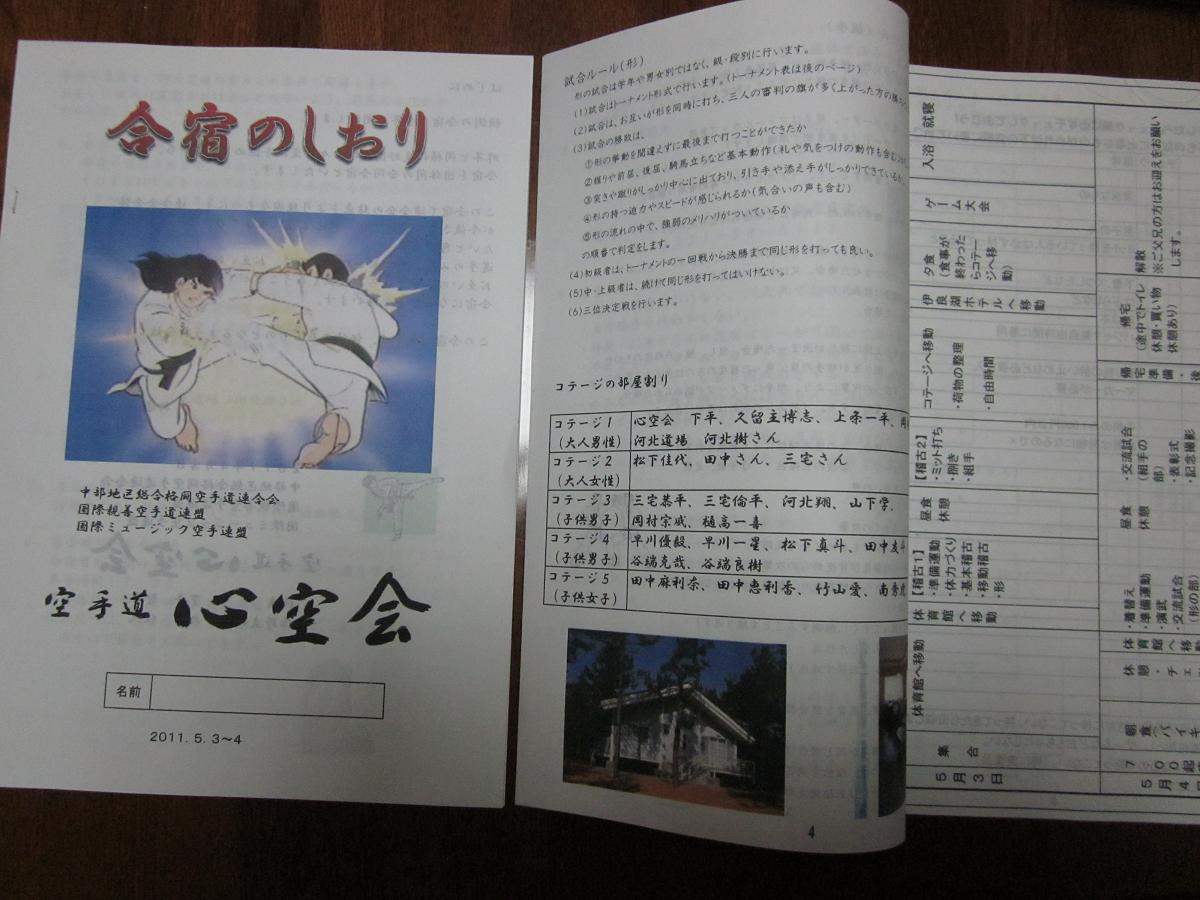 合宿のしおり
中部地区総合格闘空手道連合会
国際親善空手道連盟
国際ミュージック空手連盟
空手道 心空会
名前
2011.5.3～4
試合ルール(形)
形の試合は学年や男女別ではなく、級・段別に行います。
(1)試合はトーナメント形式で行います。(トーナメント表は後のページ)
(2)試合は、お互いが形を同時に打ち、三人の審判の旗が多く上がった方の勝
(3)試合の勝敗は、
①形の挙動を間違えずに最後まで打つことができたか
②握りや前屈、後屈、騎馬立ちなど基本動作(礼や気をつけの動作も含む)
③突きや蹴りがしっかり中心に出ており、引き手や添え手がしっかりできているか、
④形の持つ迫力やスピードが感じられるか(気合いの声も含む)
⑤形の流れの中で、強弱のメリハリがついているか
の順番で判定をします。
(4)初級者は、トーナメントの一回戦から決勝まで同じ形を打っても良い。
(5)中・上級者は、続けて同じ形を打ってはいけない。
(6)三位決定戦を行います。
コテージの部屋割り
コテージ1 心空会 下平、久留主博志、上条一平、
(大人男性) 河北道場 河北樹さん
コテージ2 松下佳代、田中さん、三宅さん
(大人女性)
コテージ3 三宅恭平、三宅倫平、河北翔、山下学、
(子供男子) 岡村宗威、樋高一喜
コテージ4 早川優毅、早川一星、松下真斗、田中友斗
(子供男子) 谷端克哉、谷端良樹
コテージ5 田中麻利奈、田中恵利香、竹山愛、南
(子供女子)
4
5月3日
集合
体育館へ移動
体育館へ移動
【稽古1】
・準備運動
・体力づくり
・基本稽古
・移動稽古
・形
昼食
休憩
【稽古2】
・ミット打ち
・捌き
・組手
コテージへ移動
・荷物の整理
・自由時間
伊良湖ホテルへ移動
夕食
(食事が終わったらコテージへ移動)
ゲーム大会
入浴
就寝
5月4日
7:00起
朝食(バイキ
休憩・チェ
体育館へ移
・着替え
・準備運動
・演武
・交流試合
(形の部)
昼食
休憩
・交流試合
(組手の部)
・表彰式
・記念撮影
帰宅準備・後
帰宅
(途中でトイレ休憩・買い物休憩あり)
解散
※ご父兄の方はお迎えをお願いします。